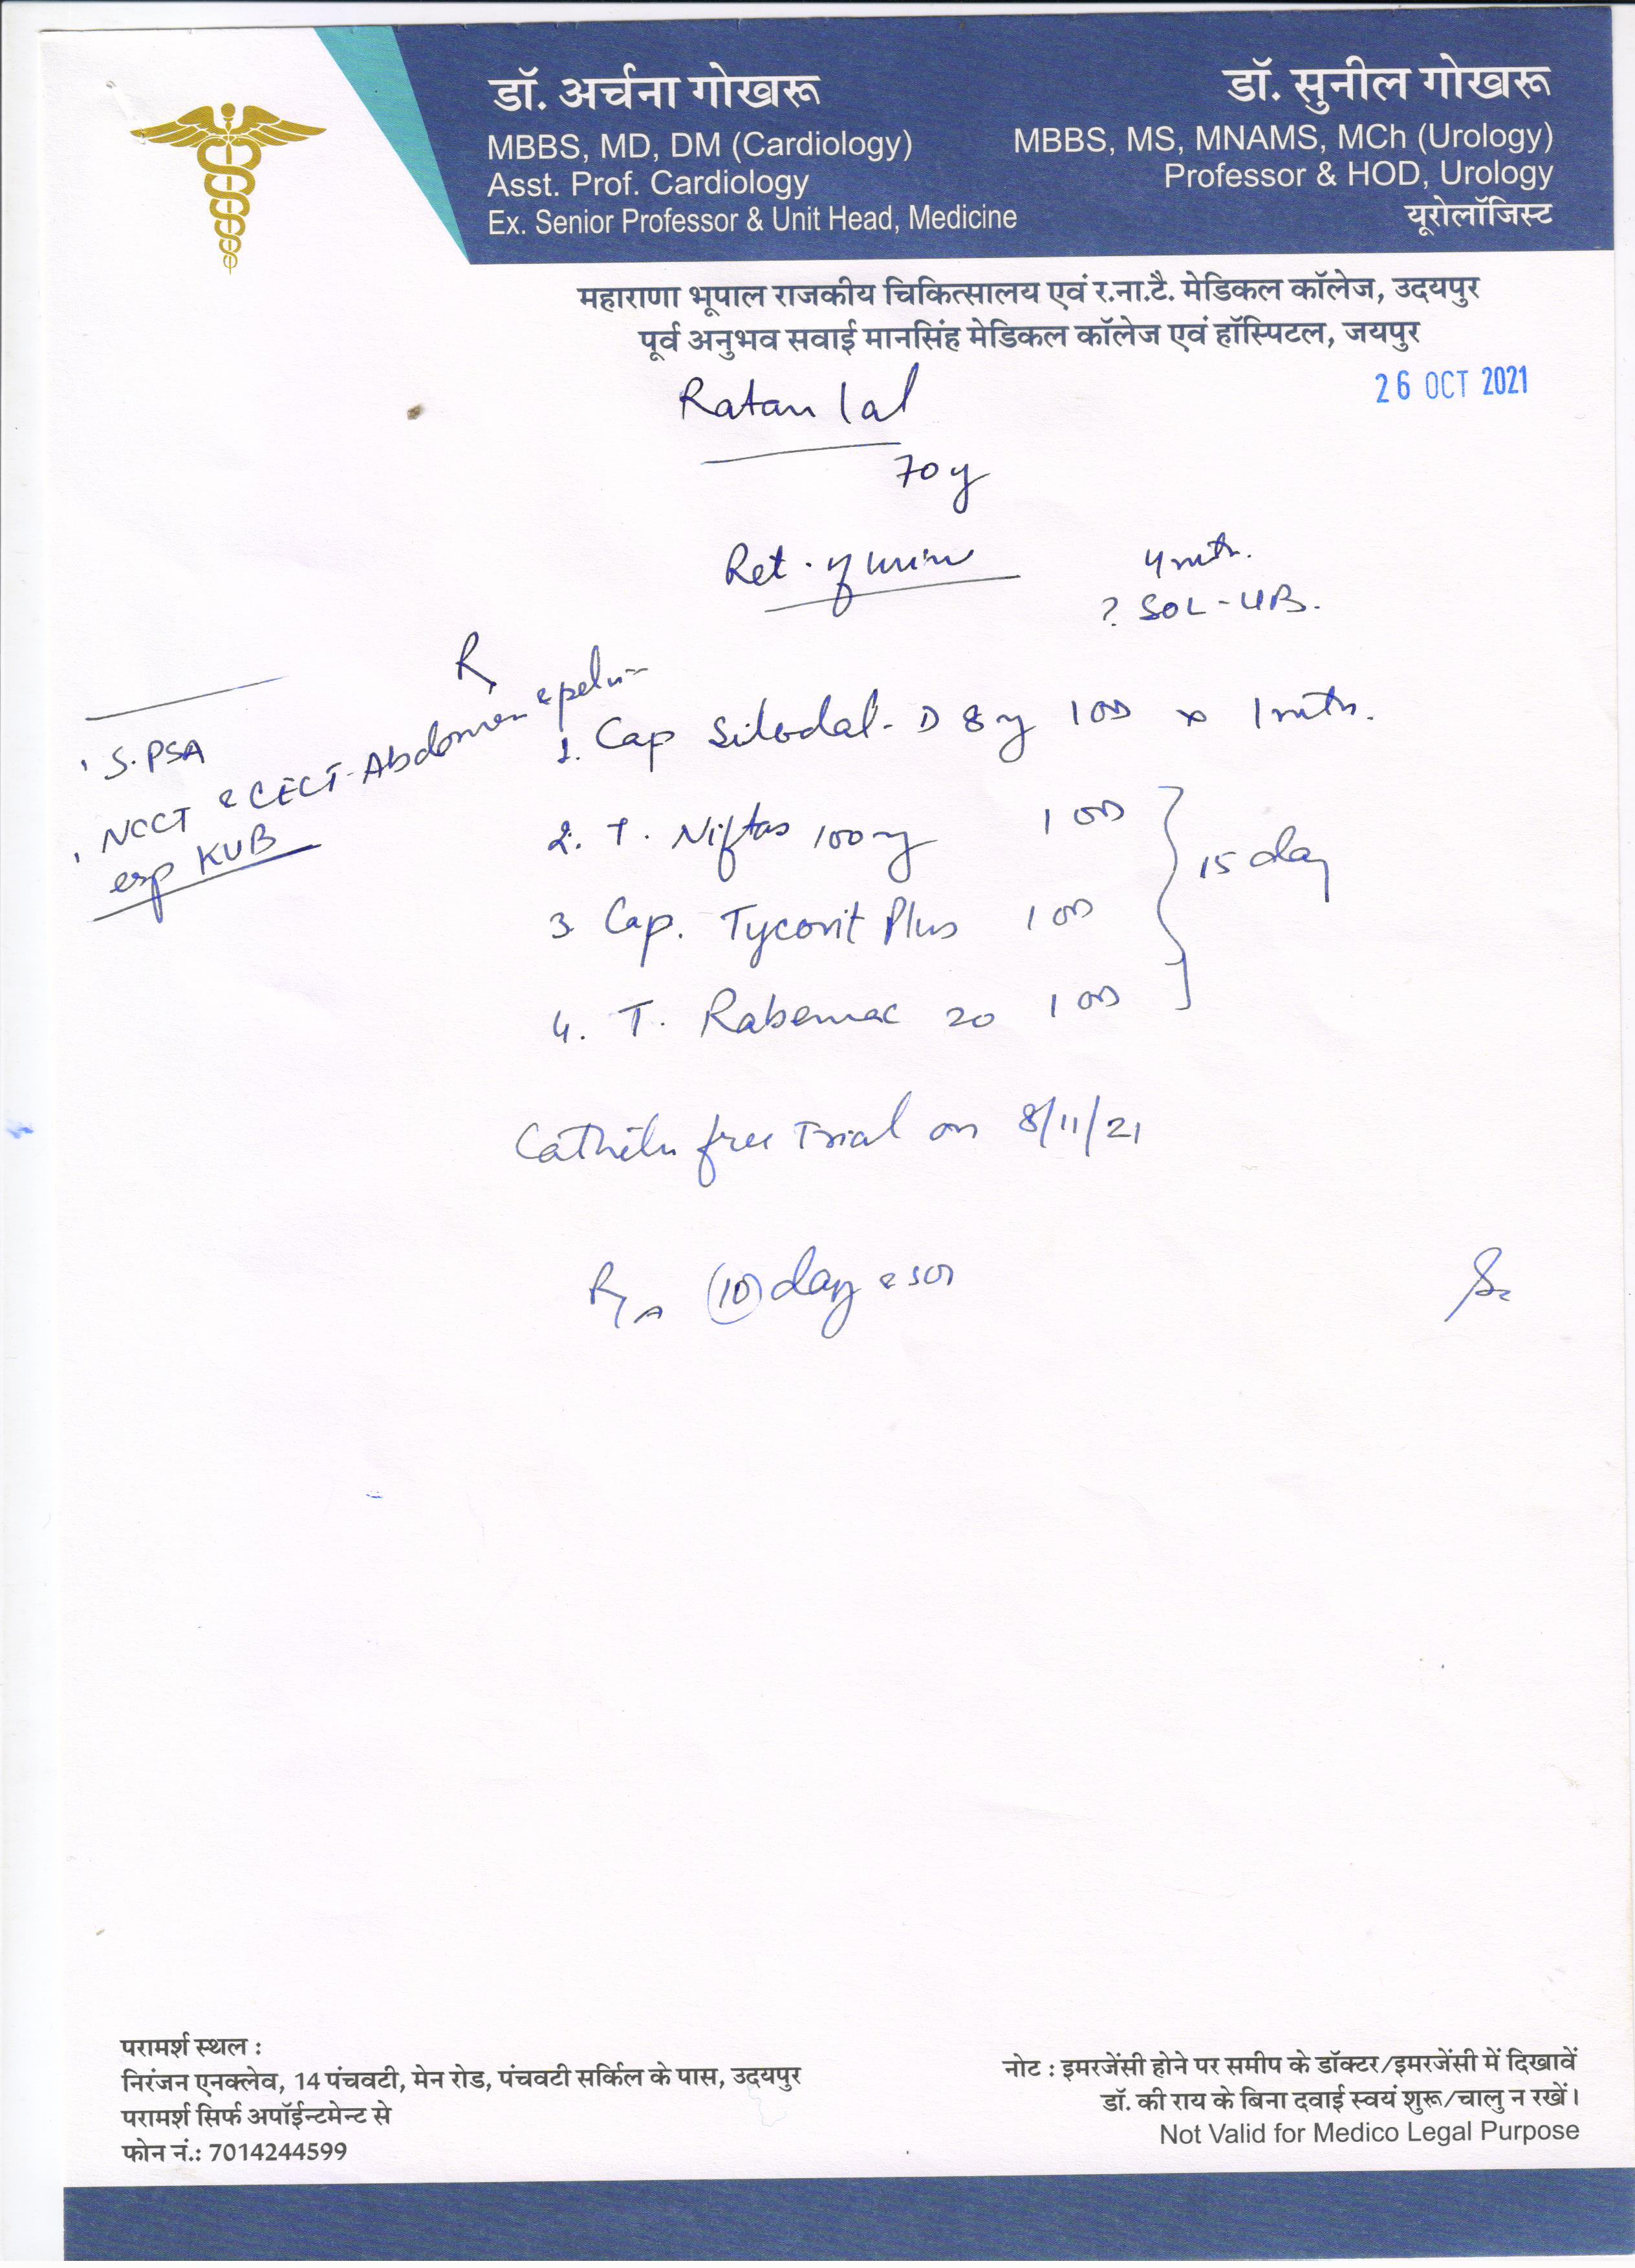 डॉ. अर्चना गोखरू
MBBS, MD, DM (Cardiology)
Asst. Prof. Cardiology
Ex. Senior Professor & Unit Head, Medicine
डॉ. सुनील गोखरू
MBBS, MS, MNAMS, MCh (Urology)
Professor & HOD, Urology
यूरोलॉजिस्ट
महाराणा भूपाल राजकीय चिकित्सालय एवं र.ना.टै. मेडिकल कॉलेज, उदयपुर
पूर्व अनुभव सवाई मानसिंह मेडिकल कॉलेज एवं हॉस्पिटल, जयपुर
26 OCT 2021
Ratan lal
70y
Ret. of urine
4 mth.
? SOL-UB.
R
S. PSA
NCCT & CECT-Abdomen & pelvis
esp KUB
1. Cap Silodal-D 8mg 1 OD x 1 mth.
2. T. Niftas 100mg 1 OD
3 Cap. Tycovit Plus 1 OD
4. T. Rabemac 20 1 OD
15 day
Catheter free Trial on 8/11/21
(10) day
परामर्श स्थल :
निरंजन एनक्लेव, 14 पंचवटी, मेन रोड, पंचवटी सर्किल के पास, उदयपुर
परामर्श सिर्फ अपॉईन्टमेन्ट से
फोन नं.: 7014244599
नोट : इमरजेंसी होने पर समीप के डॉक्टर/इमरजेंसी में दिखावें
डॉ. की राय के बिना दवाई स्वयं शुरू/चालु न रखें।
Not Valid for Medico Legal Purpose